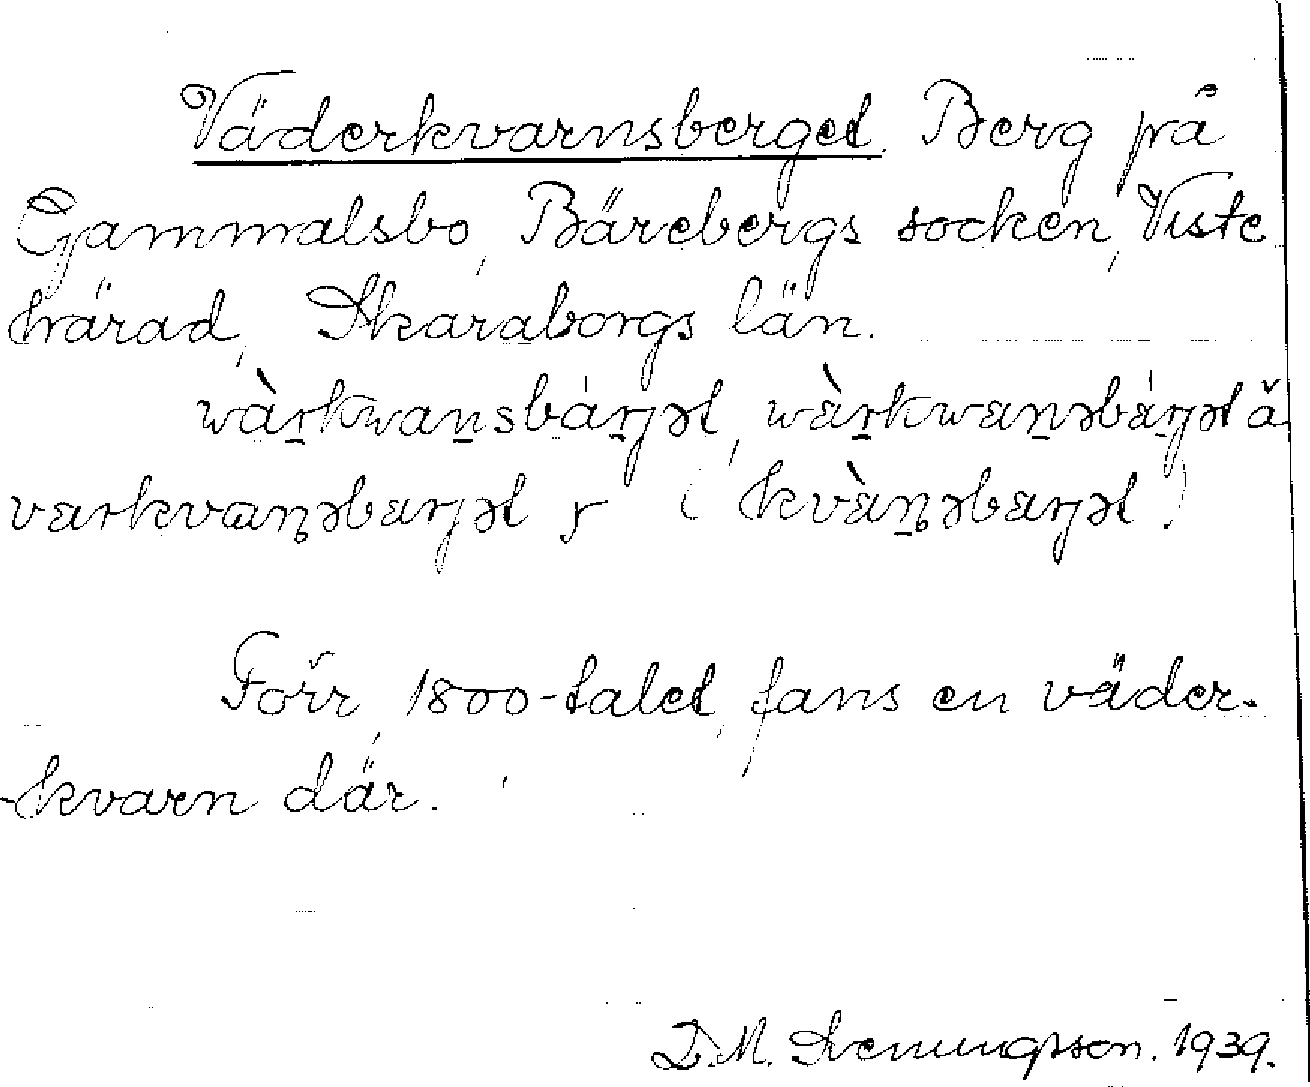 Väderkvarnsberget. Berg på
Gammalsbo, Bärebergs socken, Viste
härad, Skaraborgs län.
wàrkwansbárjət, wὰrkwαnsbάrjət å
vαrkvαnsbαrjət r (kvὰnsbαrjət)
Förr, 1800-talet, fans en väder-
-kvarn där.
D. M. Svenungsson. 1939.